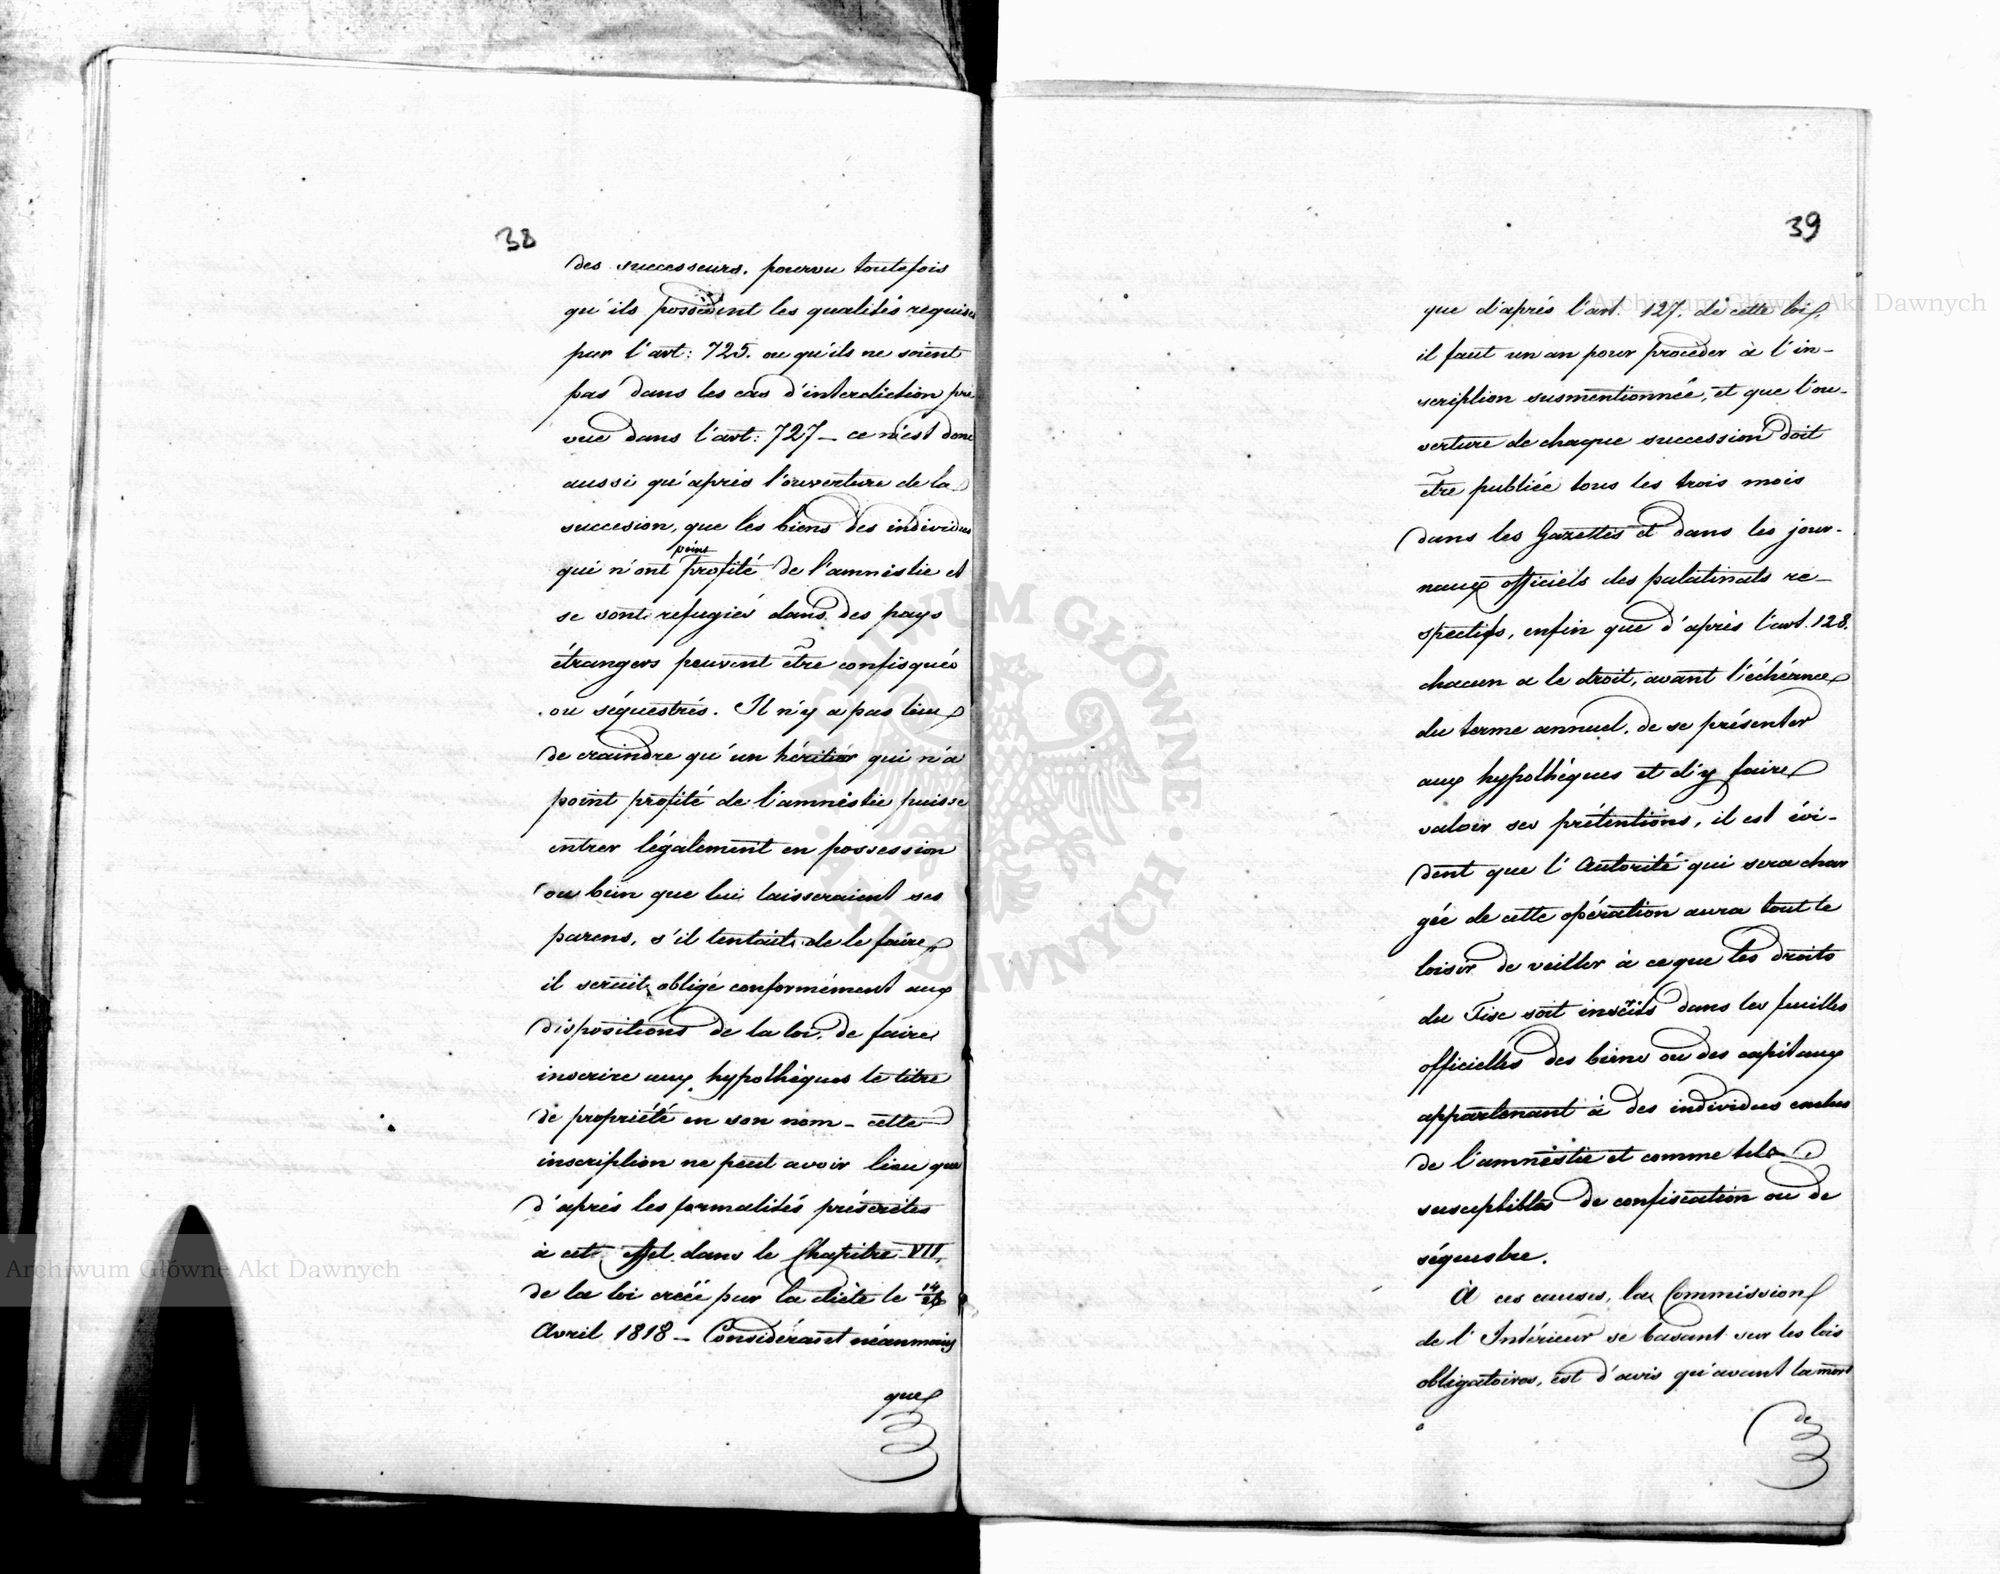 38
des successeurs, pourvu toutefois
qu'ils possèdent les qualités requises
par l'art: 725. ou qu'ils ne soient
pas dans les cas d'interdiction pré
vue dans l'art: 727 – ce n'est donc
aussi qu'après l'ouverture de la
succesion, que les biens des individus
point
qui n'ont profité de l'amnéstie et
se sont refugiés dans des pays
étrangers peuvent être confisqués
ou séquestrés. Il n'y a pas lieu
de craindre qu'un héritier qui n'a
point profité de l'amnéstie puisse
entrer légalement en possession
ou bien que lui laisseraient ses
parens, s'il tentait de le faire,
il serait obligé conformément aux
dispositions de la loi, de faire
inscrire aux hypothèques le titre
de propriété en son nom – cette
inscription ne peut avoir lieu que
d'après les formalités préscrites
à cet effet dans le Chapitre VII,
de la loi créée par la diète le 14/26
Avril 1818 – Considérant néanmoins
que
39
que d'après l'art. 127. de cette loi,
il faut un an pour procéder à l'in-
scription susmentionnée, et que l'ou-
verture de chaque succession doit
être publiée tous les trois mois
dans les Gazettes et dans les jour-
naux officiels des palatinats re-
spectifs, enfin que d'après l'art. 128.
chacun a le droit, avant l'échéance
du terme annuel, de se présenter
aux hypothèques et d'y faire
valoir ses prétentions, il est évi-
dent que l'Autorité qui sera char
gée de cette opération aura tout le
loisir de veiller à ce que les droits
du Fisc soit inscrits dans les feuilles
officielles des biens ou des capitaux
appartenant à des individus exclus
de l'amnéstie et comme tels
susceptibles de confiscation ou de
séquestre.
À ces causes, la Commission
de l'Intérieur se basant sur les lois
obligatoires, est d'avis qu'avant la mort
de
Archiwum Główne Akt Dawnych
Archiwum Główne Akt Dawnych
ARCHIWUM GŁÓWNE · AKT DAWNYCH ·